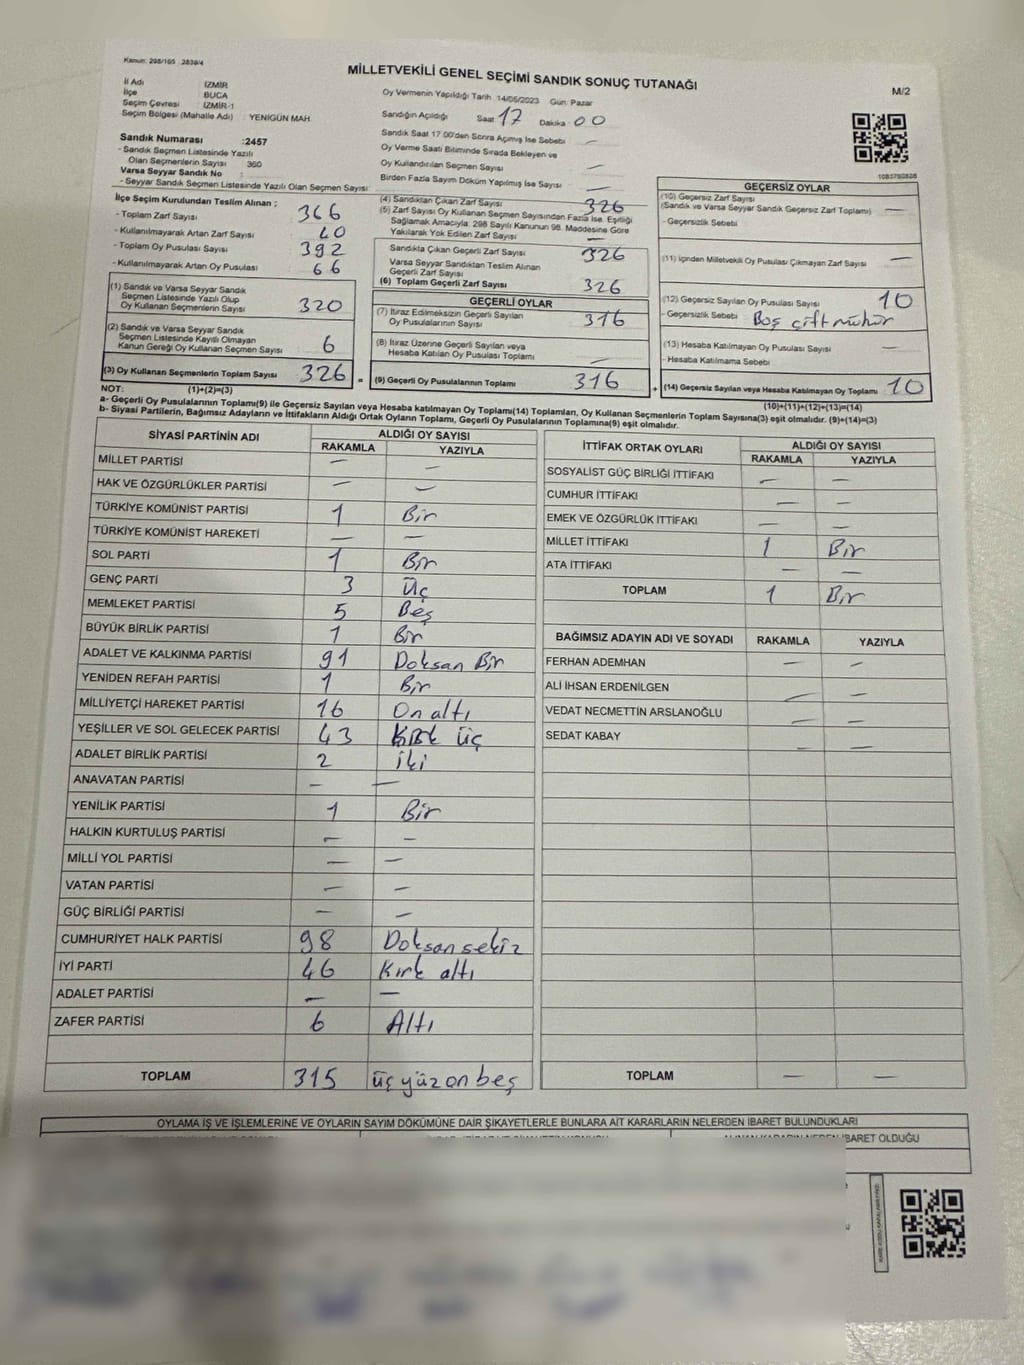 Kanun: 298/105 2839/4
MİLLETVEKİLİ GENEL SEÇİMİ SANDIK SONUÇ TUTANAĞI
M/2
İl Adı : İZMİR
İlçe : BUCA
Seçim Çevresi : İZMİR-1
Seçim Bölgesi (Mahalle Adı) : YENİGÜN MAH.
Oy Vermenin Yapıldığı Tarih 14/05/2023 Gün: Pazar
Sandığın Açıldığı Saat 17 Dakika 00
Sandık Saat 17.00'den Sonra Açımış İse Sebebi —
Oy Verme Saati Bitiminde Sırada Bekleyen ve
Oy Kullandırılan Seçmen Sayısı —
Birden Fazla Sayım Döküm Yapılmış İse Sayısı —
Sandık Numarası :2457
- Sandık Seçmen Listesinde Yazılı
Olan Seçmenlerin Sayısı 360
Varsa Seyyar Sandık No :
- Seyyar Sandık Seçmen Listesinde Yazılı Olan Seçmen Sayısı:
İlçe Seçim Kurulundan Teslim Alınan ;
- Toplam Zarf Sayısı 366
- Kullanılmayarak Artan Zarf Sayısı 40
- Toplam Oy Pusulası Sayısı 392
- Kullanılmayarak Artan Oy Pusulası 66
(1) Sandık ve Varsa Seyyar Sandık
Seçmen Listesinde Yazılı Olup
Oy Kullanan Seçmenlerin Sayısı 320
(2) Sandık ve Varsa Seyyar Sandık
Seçmen Listesinde Kayıtlı Olmayan
Kanun Gereği Oy Kullanan Seçmen Sayısı 6
(3) Oy Kullanan Seçmenlerin Toplam Sayısı 326
(4) Sandıktan Çıkan Zarf Sayısı 326
(5) Zarf Sayısı Oy Kullanan Seçmen Sayısından Fazla İse, Eşitliği
Sağlamak Amacıyla, 298 Sayılı Kanunun 98. Maddesine Göre
Yakılarak Yok Edilen Zarf Sayısı —
Sandıkta Çıkan Geçerli Zarf Sayısı 326
Varsa Seyyar Sandıktan Teslim Alınan
Geçerli Zarf Sayısı
(6) Toplam Geçerli Zarf Sayısı 326
GEÇERLİ OYLAR
(7) İtiraz Edilmeksizin Geçerli Sayılan
Oy Pusulalarının Sayısı 316
(8) İtiraz Üzerine Geçerli Sayılan veya
Hesaba Katılan Oy Pusulası Toplamı —
= (9) Geçerli Oy Pusulalarının Toplamı 316
1083780828
GEÇERSİZ OYLAR
(10) Geçersiz Zarf Sayısı —
(Sandık ve Varsa Seyyar Sandık Geçersiz Zarf Toplamı)
- Geçersizlik Sebebi
(11) İçinden Milletvekili Oy Pusulası Çıkmayan Zarf Sayısı —
(12) Geçersiz Sayılan Oy Pusulası Sayısı 10
- Geçersizlik Sebebi Boş çift mühür
(13) Hesaba Katılmayan Oy Pusulası Sayısı —
- Hesaba Katılmama Sebebi
+ (14) Geçersiz Sayılan veya Hesaba Katılmayan Oy Toplamı 10
NOT: (1)+(2)=(3)
(10)+(11)+(12)+(13)=(14)
a- Geçerli Oy Pusulalarının Toplamı(9) ile Geçersiz Sayılan veya Hesaba katılmayan Oy Toplamı(14) Toplamları, Oy Kullanan Seçmenlerin Toplam Sayısına(3) eşit olmalıdır. (9)+(14)=(3)
b- Siyasi Partilerin, Bağımsız Adayların ve İttifakların Aldığı Ortak Oyların Toplamı, Geçerli Oy Pusulalarının Toplamına(9) eşit olmalıdır.
SİYASİ PARTİNİN ADI ALDIĞI OY SAYISI
RAKAMLA YAZIYLA
MİLLET PARTİSİ — —
HAK VE ÖZGÜRLÜKLER PARTİSİ — —
TÜRKİYE KOMÜNİST PARTİSİ 1 Bir
TÜRKİYE KOMÜNİST HAREKETİ — —
SOL PARTİ 1 Bir
GENÇ PARTİ 3 Üç
MEMLEKET PARTİSİ 5 Beş
BÜYÜK BİRLİK PARTİSİ 1 Bir
ADALET VE KALKINMA PARTİSİ 91 Doksan Bir
YENİDEN REFAH PARTİSİ 1 Bir
MİLLİYETÇİ HAREKET PARTİSİ 16 On altı
YEŞİLLER VE SOL GELECEK PARTİSİ 43 Kırk üç
ADALET BİRLİK PARTİSİ 2 İki
ANAVATAN PARTİSİ — —
YENİLİK PARTİSİ 1 Bir
HALKIN KURTULUŞ PARTİSİ — —
MİLLİ YOL PARTİSİ — —
VATAN PARTİSİ — —
GÜÇ BİRLİĞİ PARTİSİ — —
CUMHURİYET HALK PARTİSİ 98 Doksan sekiz
İYİ PARTİ 46 Kırk altı
ADALET PARTİSİ — —
ZAFER PARTİSİ 6 Altı
TOPLAM 315 üç yüz on beş
İTTİFAK ORTAK OYLARI ALDIĞI OY SAYISI
RAKAMLA YAZIYLA
SOSYALİST GÜÇ BİRLİĞİ İTTİFAKI — —
CUMHUR İTTİFAKI — —
EMEK VE ÖZGÜRLÜK İTTİFAKI — —
MİLLET İTTİFAKI 1 Bir
ATA İTTİFAKI — —
TOPLAM 1 Bir
BAĞIMSIZ ADAYIN ADI VE SOYADI RAKAMLA YAZIYLA
FERHAN ADEMHAN — —
ALİ İHSAN ERDENİLGEN — —
VEDAT NECMETTİN ARSLANOĞLU — —
SEDAT KABAY — —
TOPLAM — —
OYLAMA İŞ VE İŞLEMLERİNE VE OYLARIN SAYIM DÖKÜMÜNE DAİR ŞİKAYETLERLE BUNLARA AİT KARARLARIN NELERDEN İBARET BULUNDUKLARI
İBARET OLDUĞU